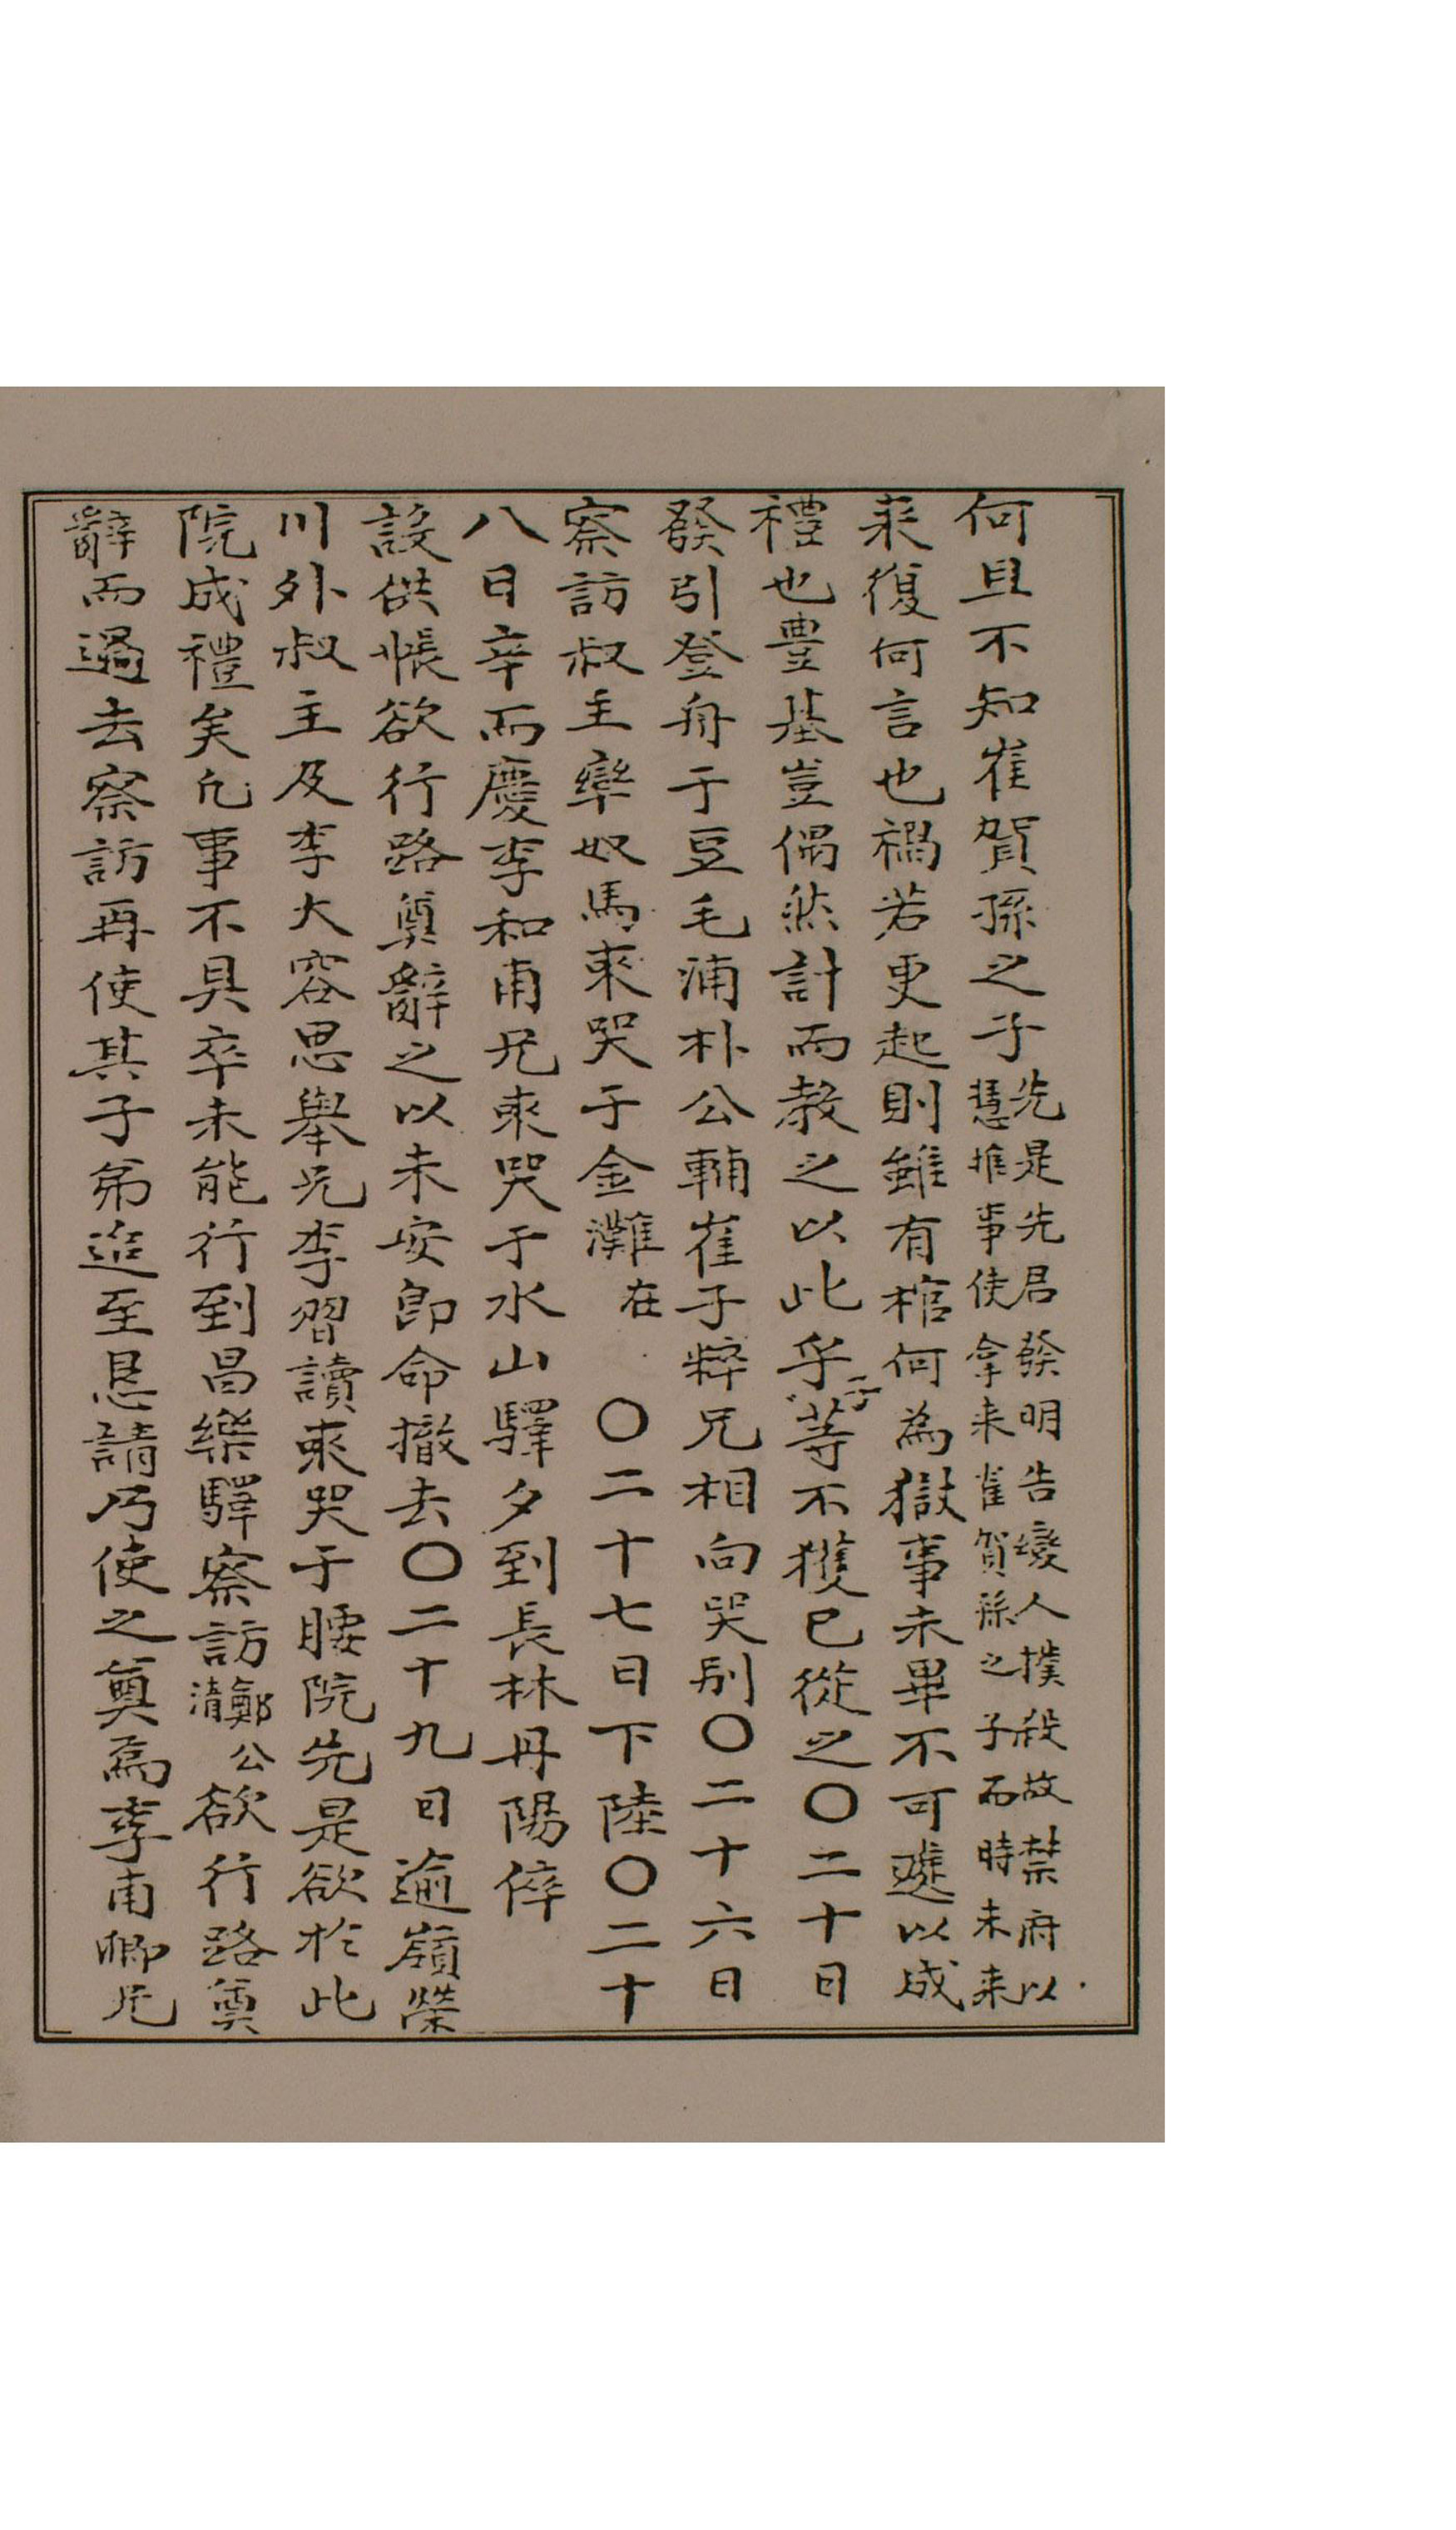 何且不知崔賀孫之子先是先君發明告變人撲殺故禁府以慧推事使拿来崔賀孫之子而時未来
来復何言也禍若更起則雖有棺何為獄事未畢不可遽以成
禮也豊基豈偶然計而教之以此乎子等不獲已從之〇二十日
發引登舟于豆毛浦朴公輔崔子粹兄相向哭别〇二十六日
察訪叔主率奴馬来哭于金灘在〇二十七日下陸〇二十
八日辛而慶李和甫兄来哭于水山驛夕到長林丹陽倅
設供帳欲行路奠辭之以未安即命撤去〇二十九日逾嶺榮
川外叔主及李大容思舉兄李習讀来哭于腰院先是欲於此
院成禮矣凢事不具卒未能行到昌樂驛察訪鄭公清欲行路奠
辭而過去察訪再使其子弟追至恳請乃使之奠焉李甫卿兄